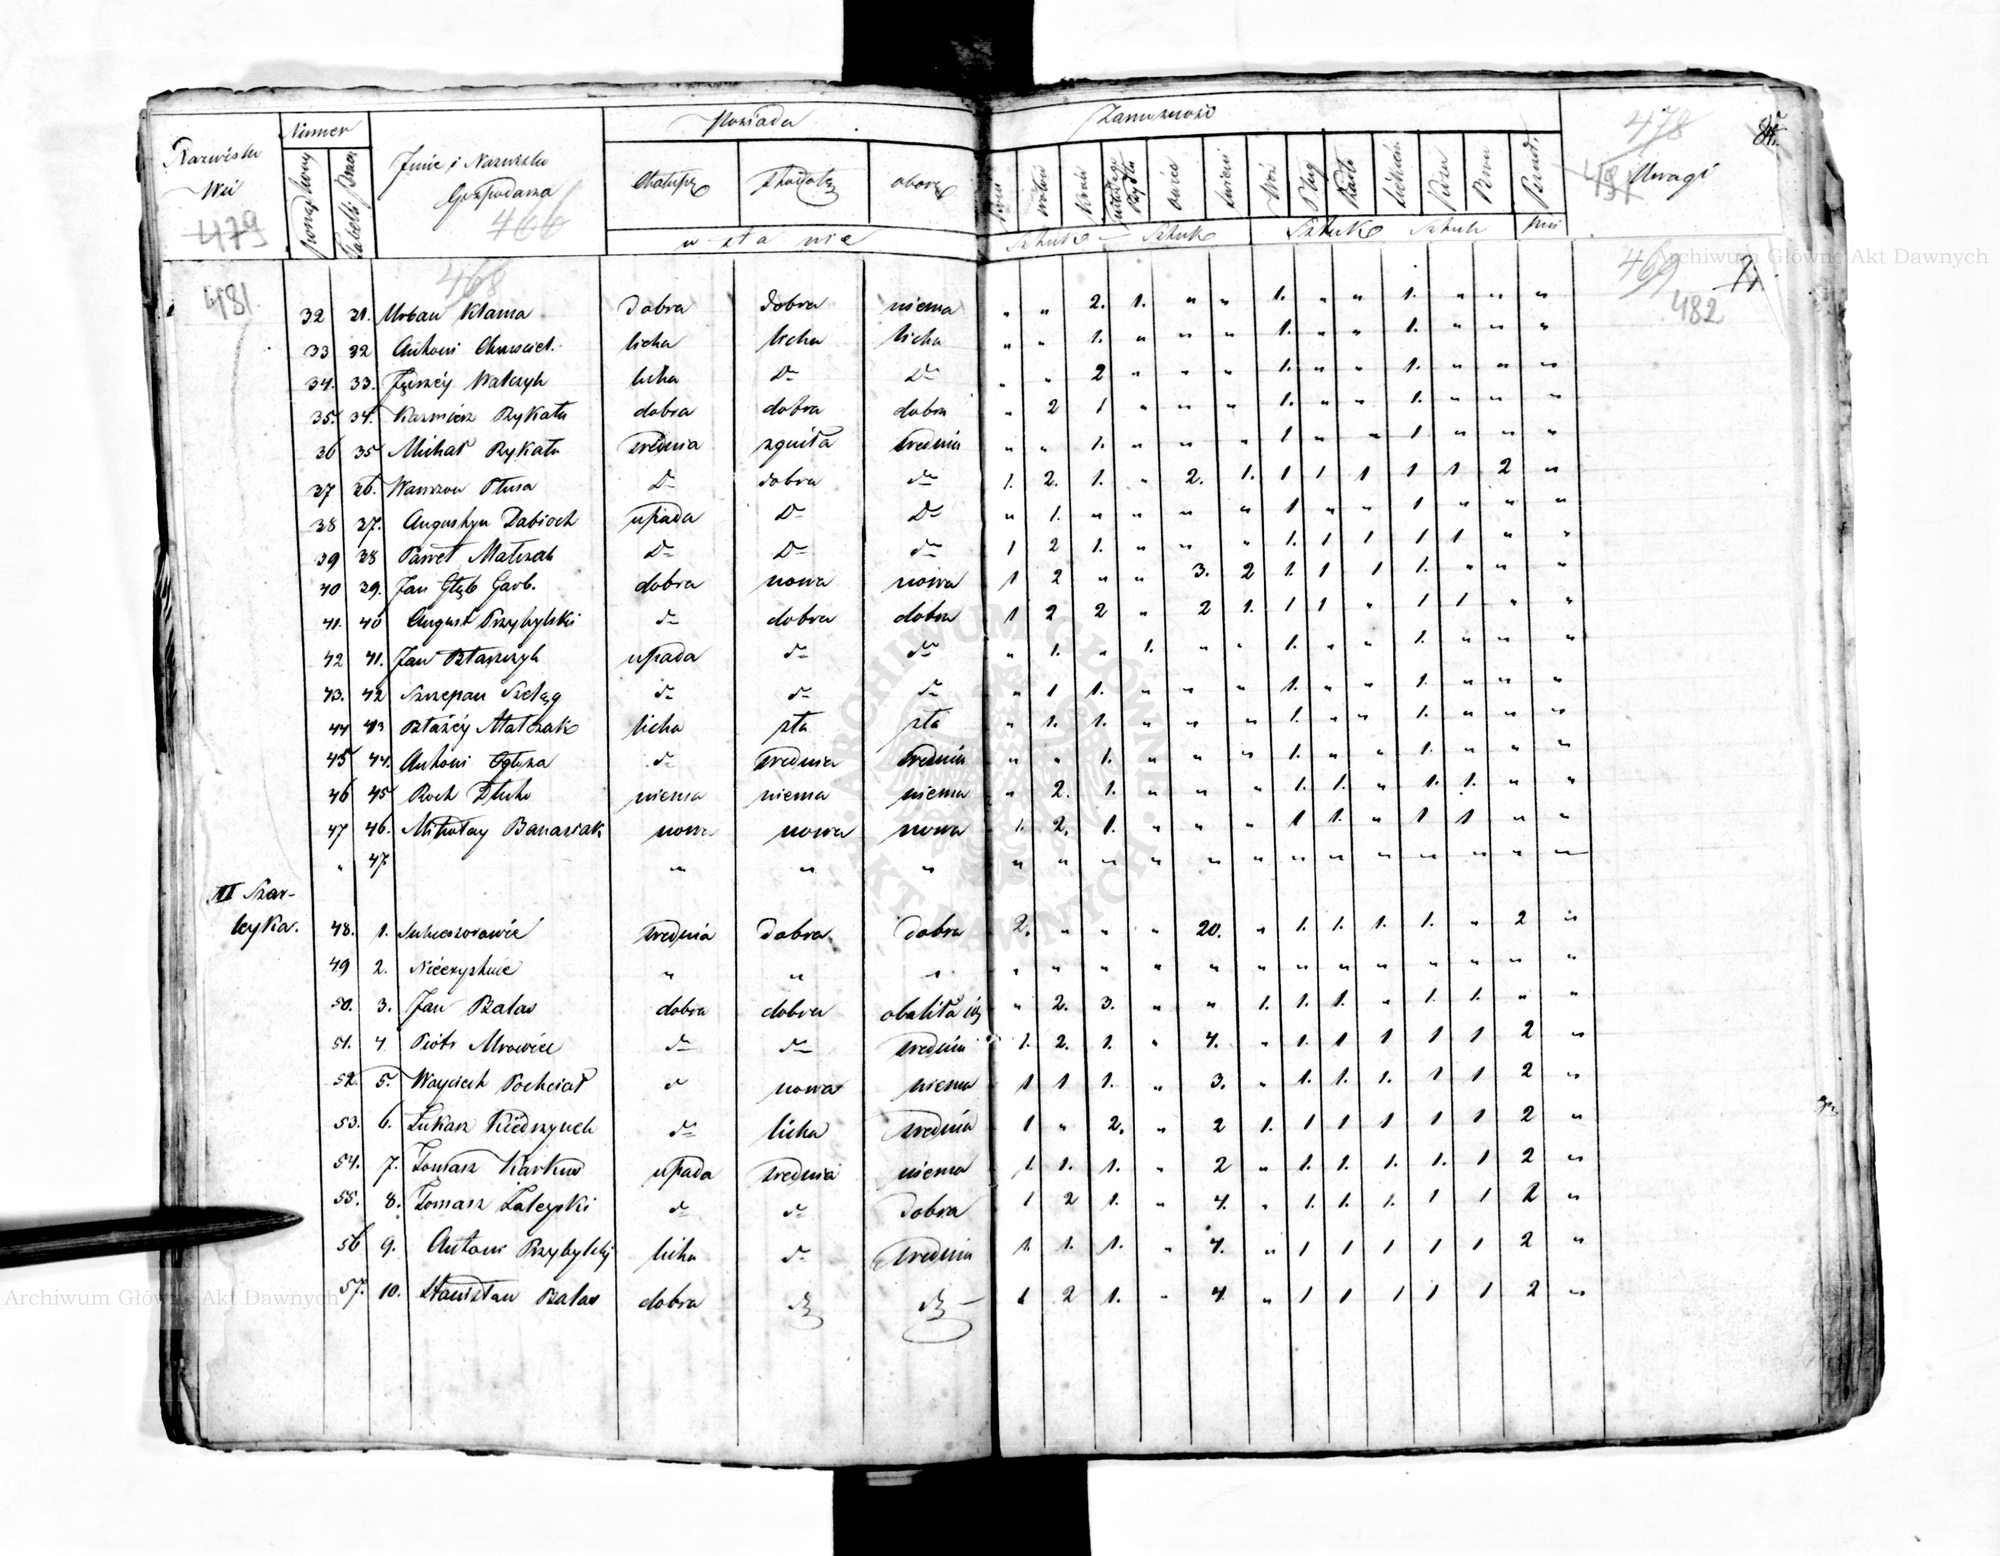 Nazwisko Numer Posiada Zamożność 478
Wsi Imie i Nazwisko Chałupę Stodołę oborę Koni Wołów Krów Bydła Owiec Świni Wóz Pług Radło Uwagi
479 Gospodarza 466 w sta nie Sztuk Sztuk Sztuk Sztuk
481 468 469 482
32 31. Urban Klama dobra dobra niema " " 2. 1. " " 1. " " 1. " " "
33 32 Antoni licha licha licha " " 1. " " " 1. " " 1. " " "
34. 33. Walczyk licha Do Do " " 2 " " " 1. " " 1. " " "
35. 34. Kazmierz Rykała dobra dobra dobra " 2 1 " " " 1. " " 1. " " "
36 35 Michał Rykała średnia zgniła średnia " " 1. " " " 1 " " 1 " " "
37 36. Wawrzon Do dobra do 1. 2. 1. " 2. 1. 1 1 1 1 1 2 "
38 37. Augustyn upada Do Do " 1. " " " " 1 " " 1 " " "
39 38 Paweł Matczak Do Do do 1 2 1. " " " 1. 1 1 1 1 " "
40 39. Jan Głąb Garb. dobra nowa nowa 1 2 " " 3. 2 1. 1 1 1. " " "
41. 40 August Przybylski do dobra dobra 1 2 2 " 2 1. 1 1 " 1 1 " "
42 41. Jan upada do do " 1. " 1. " " 1. " " 1. " " "
43. 42 Szczepan Szeląg do do do " 1 1. " " " 1. " " 1. " " "
44 43 Błażéy Matczak licha zła zła " 1. 1. " " " 1. " " 1. " " "
45 44. Antoni do średnia średnia " " 1. " " " 1. " " 1. " " "
46 45 Roch niema niema niema " 2. 1. " " " 1. 1. " 1. 1. " "
47 46. Mikołay Banasiak nowa nowa nowa 1. 2. 1. " " " 1 1. " 1 1 " "
" 47. " " " " " " " " " " " " " " " "
III Szar-
leyka. 48. 1. średnia dobra dobra 2. " " " 20. " 1. 1. 1. 1. " 2 "
49 2. " " " " " " " " " " " " " " " "
50. 3. Jan Balas dobra dobra obaliła się " 2. 3. " " 1. 1. 1. " 1. 1. " "
51. 4 Piotr Mrowiec do do średnia 1. 2. 1. " 4. " 1. 1 1 1 1 2 "
52. 5. Woyciech Pochciał d nowa niema 1 1 1. " 3. " 1. 1. 1. 1 1 2 "
53. 6. Łukasz Kiedrzynek do licha średnia 1 " 2. " 2 1. 1 1 1 1 1 2 "
54. 7. Tomasz upada średnia niema 1. 1. 1. " 2 " 1. 1. 1. 1. 1 2 "
55. 8. Tomasz Zaleyski do do dobra 1 2 1. " 4. " 1. 1. 1. 1 1 2 "
56 9. Antoni Przybylski licha do średnia 1. 1. 1. " 4. " 1 1 1 1 1 2 "
57. 10. Stanisław Balas dobra do do 1 2 1. " 4 " 1 1 1 1 1 2 "
Archiwum Główne Akt Dawnych
Archiwum Główne Akt Dawnych